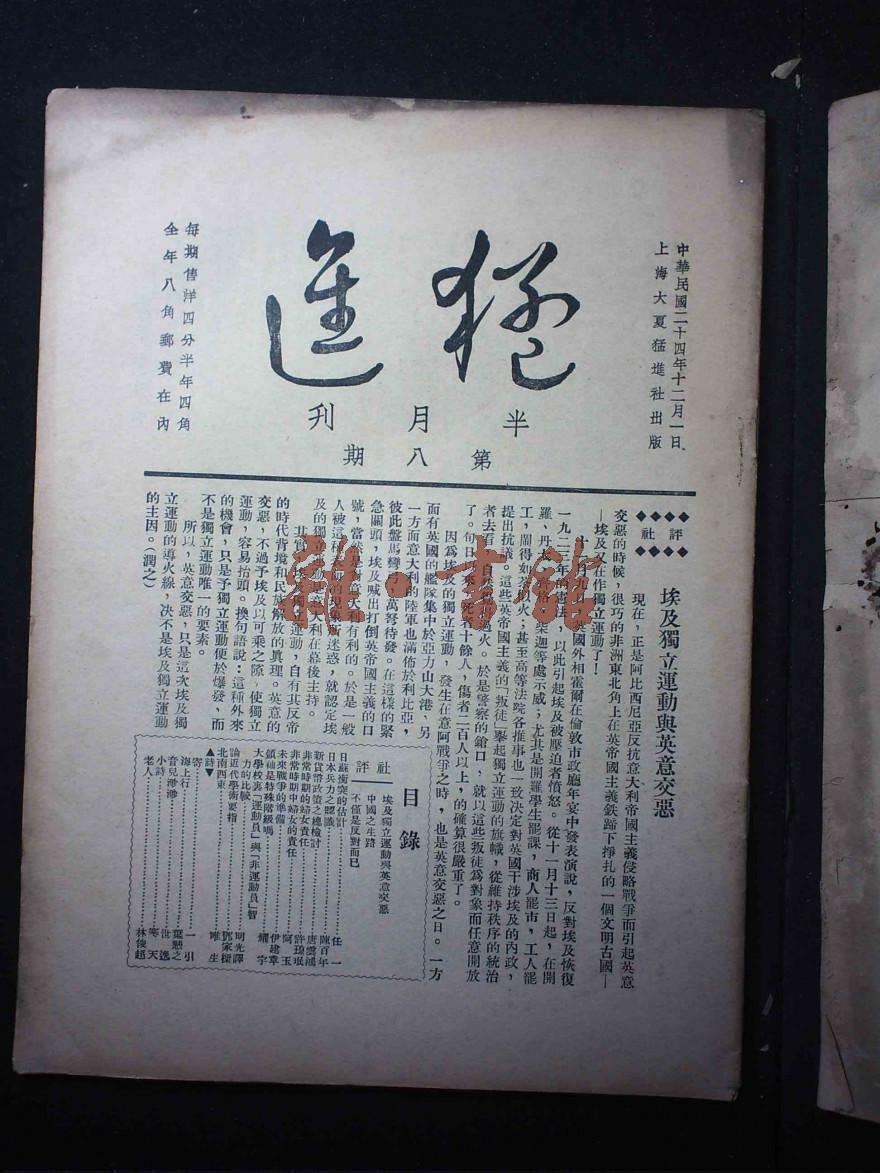 中華民國二十四年十二月一日
上海大夏猛進社出版
猛進
半月刊
第八期
每期售洋四分半年四角
全年八角郵費在內
社評
埃及獨立運動與英意交惡
現在，正是阿比西尼亞反抗意大利帝國主義侵略戰爭而引起英意
交惡的時候，很巧的非洲東北角上在英帝國主義鉄蹄下掙扎的一個文明古國—
—埃及又在作獨立運動了！
十一月九日，英國外相霍爾在倫敦市政廳年宴中發表演說，反對埃及恢復
一九二三年的憲法，以此引起埃及被壓迫者憤怒。從十一月十三日起，在開
羅、丹太、柴迦等處示威；尤其是開羅學生罷課，商人罷市，工人罷
工，鬧得如荼如火；甚至高等法院各推事也一致決定對英國干涉埃及的內政，
提出抗議。這些英帝國主義的「叛徒」舉起獨立運動的旗幟，從維持秩序的統治
者去看，自火。於是警察的鎗口，就以這些叛徒為對象而任意開放
了。旬日以來，死者十餘人，傷者二百人以上，的確算很嚴重了。
因為埃及的獨立運動，發生在意阿戰爭之時，也是英意交惡之日。一方
面有英國的艦隊集中於亞力山大港，另
一方面意大利的陸軍也滿佈於利比亞，
彼此盤馬彎弓，萬弩待發。在這樣的緊
急關頭，埃及喊出打倒英帝國主義的口
號，當然是於意大利有利的。於是一般
人被這種的現象所迷惑，就認定埃
及的獨立運動是意大利在幕後主持。
其實，埃及獨立運動，自有其反帝
的時代背境和民族解放的眞理。英意的
交惡，不過予埃及以可乘之隙，使獨立
運動，容易抬頭。換句話說：這種外來
的機會，只是予獨立運動便於爆發，而
不是獨立運動唯一的要素。
所以，英意交惡，只是這次埃及獨
立運動的導火線，決不是埃及獨立運動
的主因。（潤之）
目錄
社評
埃及獨立運動與英意交惡
中國之生路
不僅是反對而巳
日蘇衝突的估計……任一
日本兵力之認識……陳百年
新貨幣政策之總檢討……唐雲鴻
非常時期的婦女責任……許瓊珉
非常時期中婦女的責任……阿玉
未來戰爭的準備……伊建章
領袖是特殊階級嗎……耀宇
大學校裏「運動員」與「非運動員」智
力的比較……明光譯
論近代學術要指……鄧家樑
北南西東……唯生
▲詩▼
寄……一引
海上行……葉懸之
音兒渺渺……世逸
小詩……寒天
老人……林俊超
雜·書館